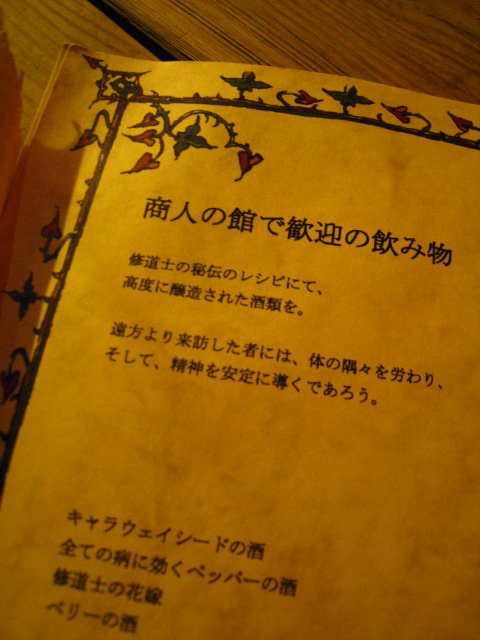 商人の館で歓迎の飲み物
修道士の秘伝のレシピにて、
高度に醸造された酒類を。
遠方より来訪した者には、体の隅々を労わり、
そして、精神を安定に導くであろう。
キャラウェイシードの酒
全ての病に効くペッパーの酒
修道士の花嫁
ベリーの酒